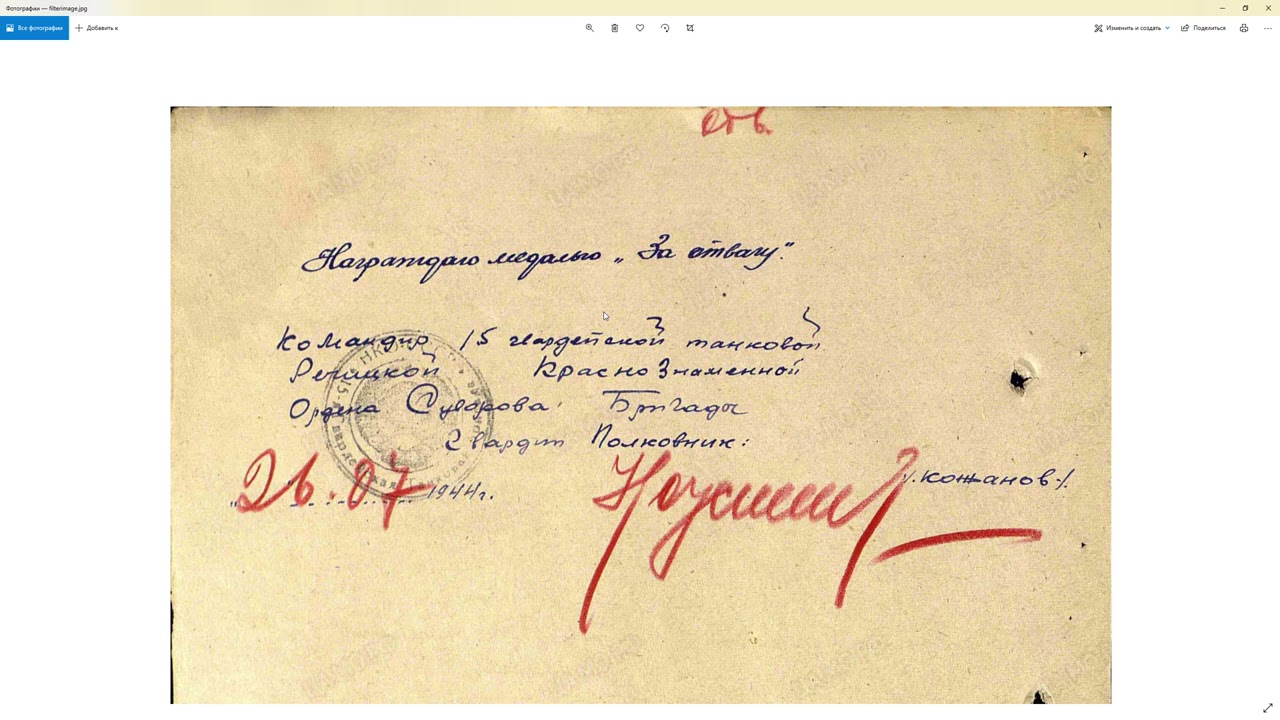 Фотографии — filterimage.jpg
Все фотографии
Добавить к
Изменить и создать
Поделиться
отв.
Награждаю медалью „За отвагу".
Командир 15 гвардейской танковой
Речицкой Краснознаменной
Ордена Суворова Бригады
Гвардии Полковник:
„26.07 1944г. /.кожанов-/.